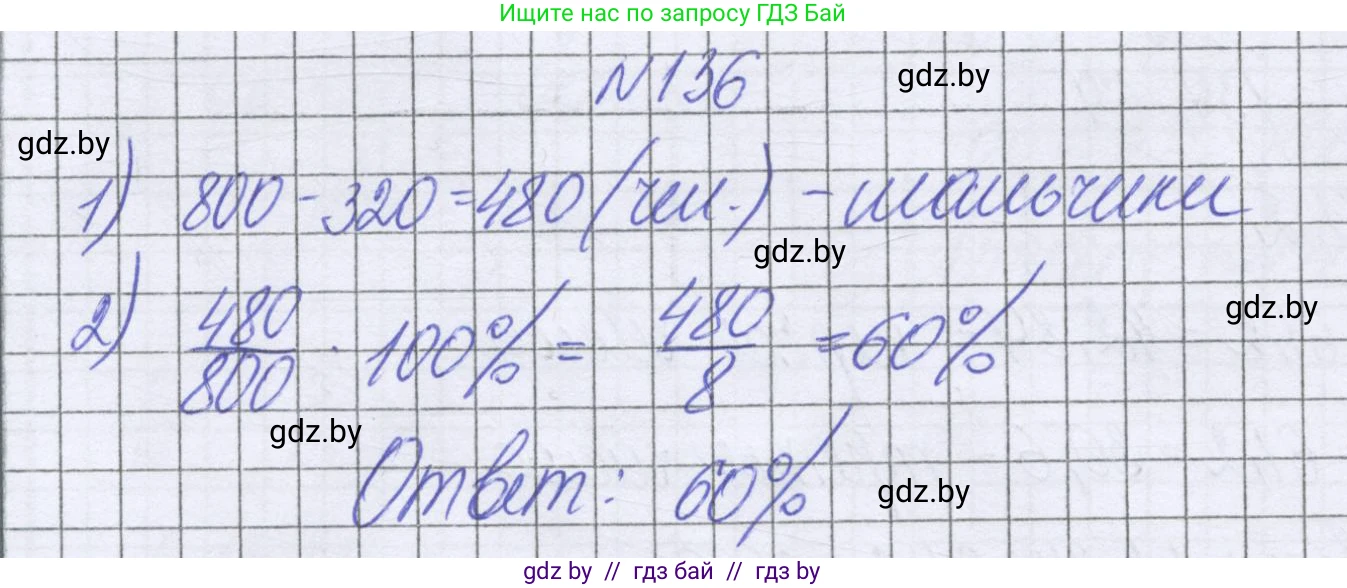 Ищите нас по запросу ГДЗ Бай
N136
gdz.by
gdz.by
1) 800 - 320 = 480 (чел.) - мальчики
gdz.by
2) 480/800 · 100% = 480/8 = 60%
gdz.by
gdz.by
Ответ: 60%
gdz.by
gdz by // гдз бай // гдз by